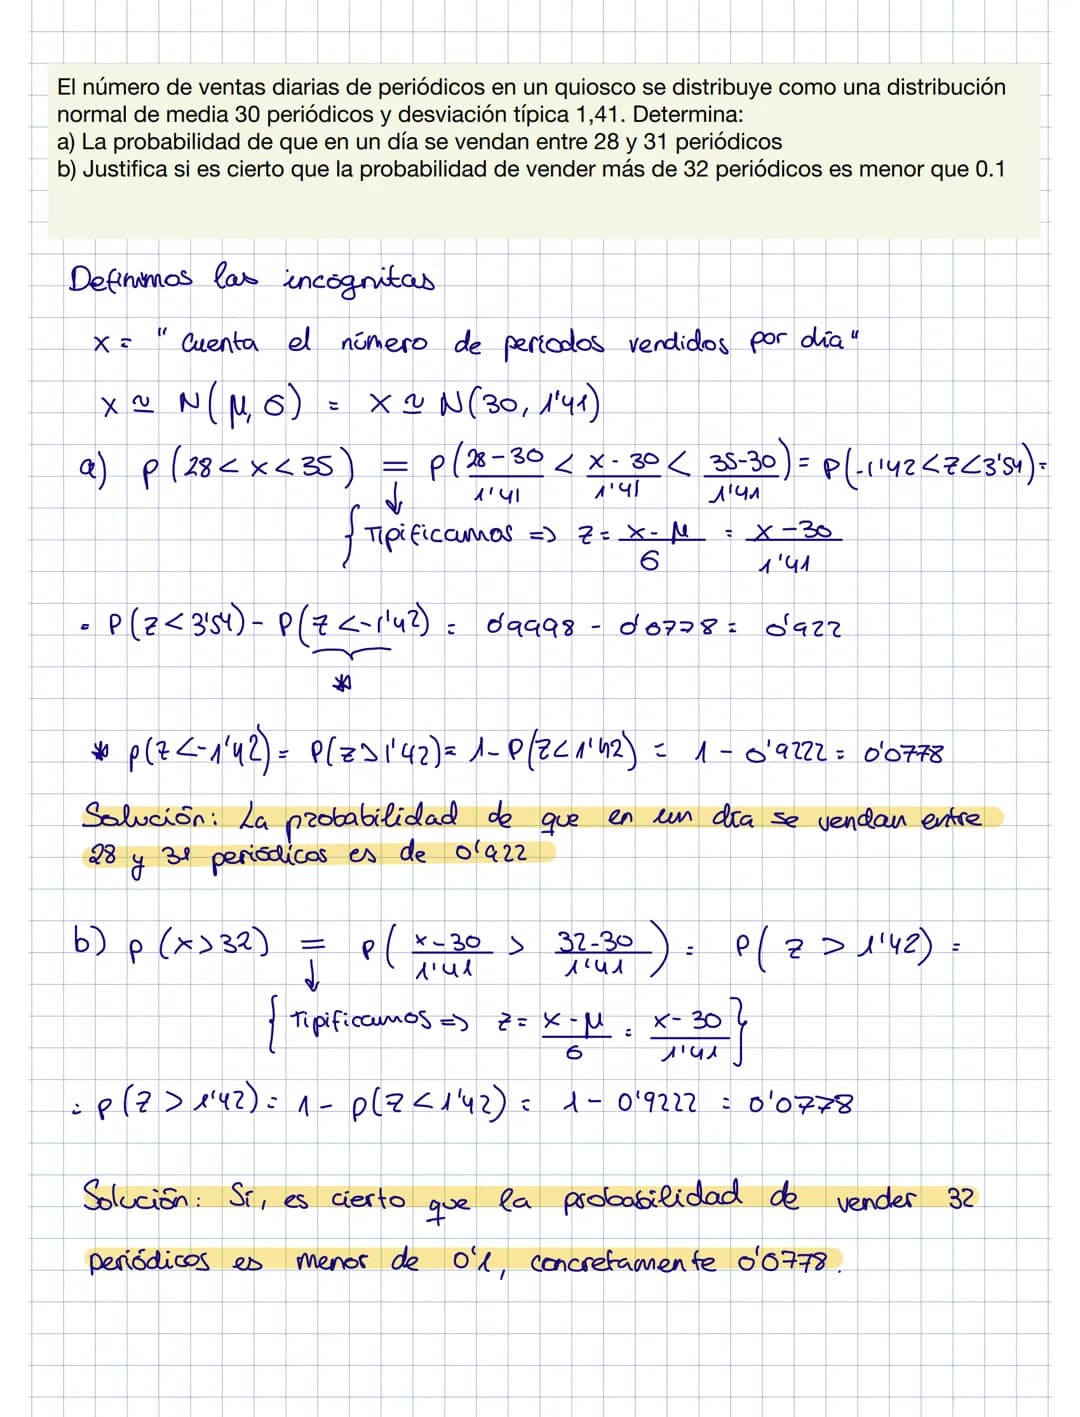 El número de ventas diarias de periódicos en un quiosco se distribuye como una distribución
normal de media 30 periódicos y desviación típica 1,41. Determina:
a) La probabilidad de que en un día se vendan entre 28 y 31 periódicos
b) Justifica si es cierto que la probabilidad de vender más de 32 periódicos es menor que 0.1
Definimos las incógnitas
x = " Cuenta el número de periodos vendidos por día "
x ≃ N(μ, σ) = x ≃ N(30, 1'41)
a) p(28 < x < 35) = p(28-30/1'41 < x-30/1'41 < 35-30/1'41) = p(-1'42 < z < 3'54) =
↓
{ Tipificamos => z = x-μ/σ = x-30/1'41
= P(z < 3'54) - P(z < -1'42) = 0'9998 - 0'0778 = 0'922
*
* p(z < -1'42) = P(z > 1'42) = 1 - P(z < 1'42) = 1 - 0'9222 = 0'0778
Solución: La probabilidad de que en un día se vendan entre
28 y 31 periódicos es de 0'922
b) p(x > 32) = p(x-30/1'41 > 32-30/1'41) = p(z > 1'42) =
↓
{ Tipificamos => z = x-μ/σ = x-30/1'41 }
= p(z > 1'42) = 1 - p(z < 1'42) = 1 - 0'9222 = 0'0778
Solución: Sí, es cierto que la probabilidad de vender 32
periódicos es menor de 0'1, concretamente 0'0778.